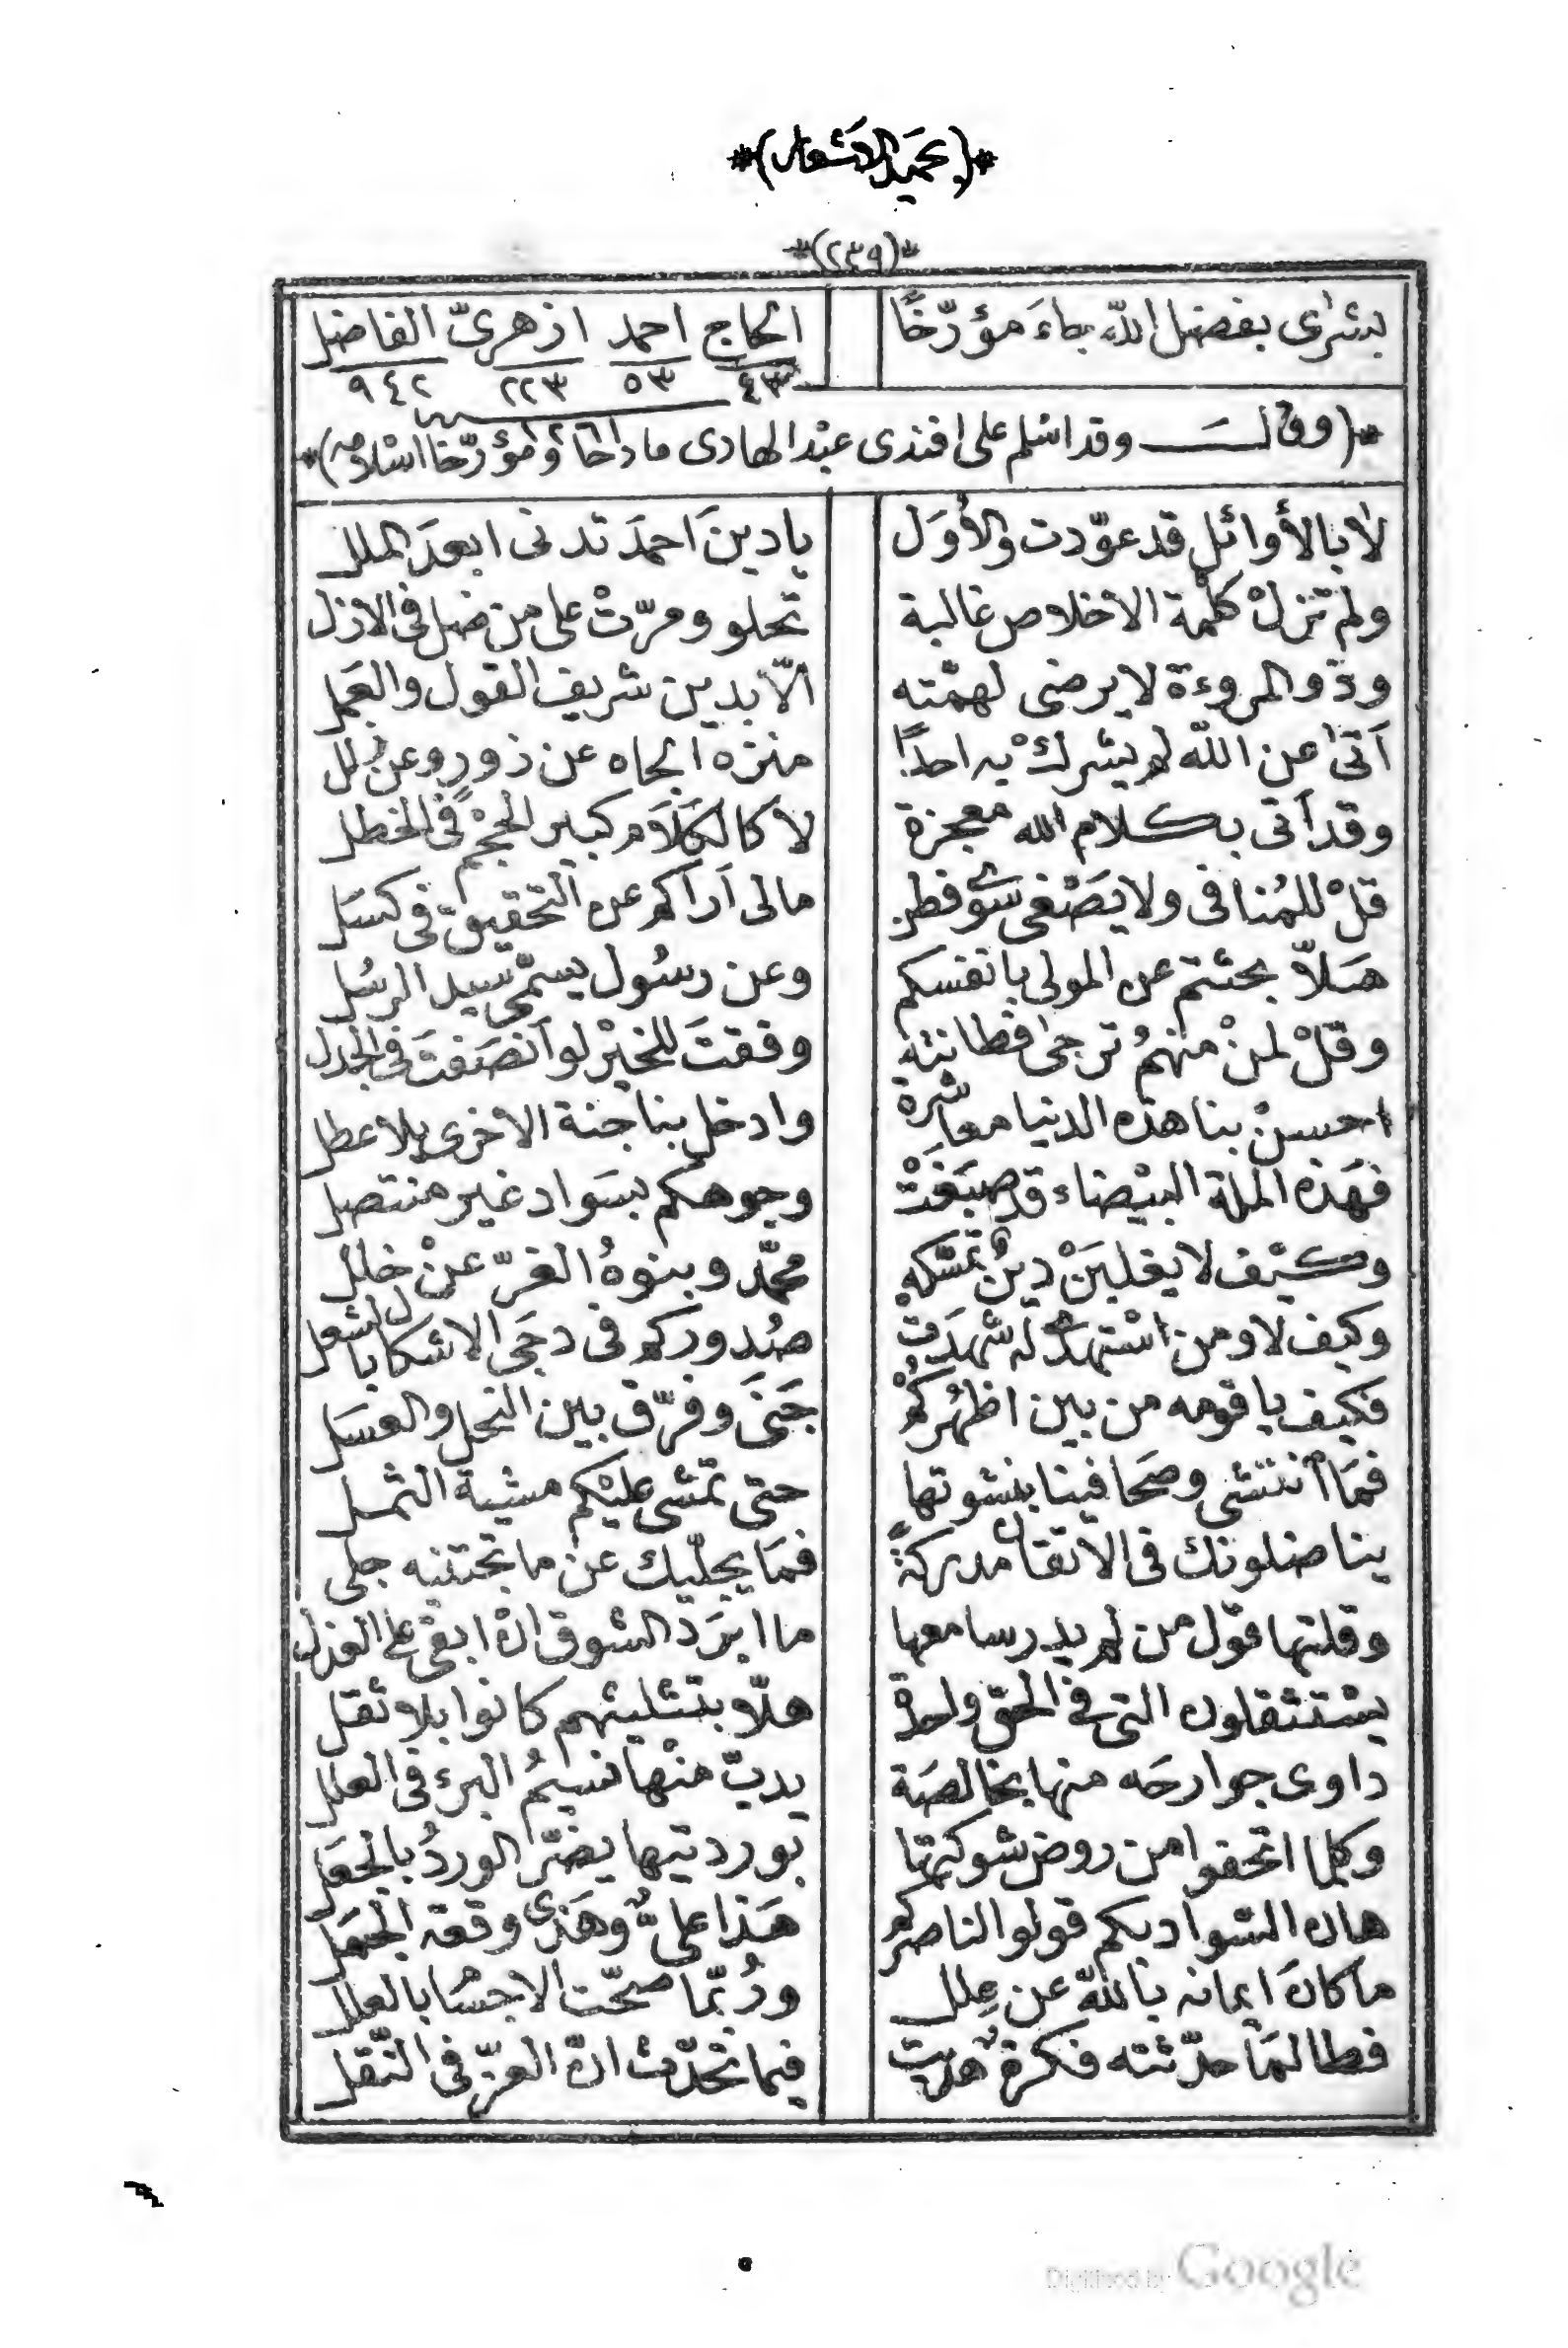 *(بحميد الاشعار)*
*(٢٣٩)*
بشرٰى بفضل اللّٰه جاءَ مؤرّخًا الحاج احمد ازهرىّ الفاضل
٤٣ ٥٣ ٢٢٣ ٩٤٢
١٢٦١
*(وقالــَ وقد اسلم على افندى عبد الهادى مادحًا ومؤرّخا اسلامه)*
لا بالأوائل قد عوّدت والأُوَل يا دينَ احمدَ تدنى ابعدَ الملل
ولم تزلْ كلمة الاخلاص غالبة تحلو ومرّتْ على من ضل فى الازل
وذو المروءة لا يرضى لهمّته الّا بدين شريف القول والعَمل
اَتىٰ عن اللّٰه لم يشركْ به احدًا منزه الجاه عن زورٍ وعن زلل
وقد اَتى بكلام اللّٰه معجزة لا كالكَلَام كبير الحجْم فى الخطل
قلْ للمُنافى ولا يَصْغى سوٰى فطن مالى اَراكم عن التحقيق فى كسَل
هَلاّ بحثتم عن المولى بانفسكم وعن رسُول يسمّى سيد الرسُل
وقلْ لمنْ منهمُ ترجىٰ فطانته وفقتَ للخيْر لو اَنصَفتَ فى الجدل
احسنْ بنا هذه الدنيا معاشرة وادخل بنا جنة الاخرى بلا عطل
فهَذه الملة البيْضاء قد صبَغَتْ وجوهكم بسَواد غير منتصل
وكيْف لا يغلبَنْ دينٌ تمسّكهٖ محمّد وبنوهُ الغرّ عنْ خلل
وكيف لا ومن استشهدْ له شهدَتْ صُدوركم فى دجَى الاشكال بالشعل
فكيف يا قومه من بين اظهُركُمْ جَنَى وفرّق بين النحل والعسَل
فمَا انتشى وصَحا فينا بنشوتها حتى تمشى عليْكم مشية الثمل
يناضلونك فى الاتقان مدركةً فمَا يجلّيك عن ما تجتنيه جلى
وقلتها قول من لم يدر سامعها ما ابرَد الشوق ان ابقى على الغزل
يسْتثقلون التى فى الحقّ واحدة هلّا بتثليثهم كانوا بلا ثقل
داوى جوارحَه منها بخالصَة يدبّ منْها نسيمُ البرء فى العلل
وكلما اتحفوا من روض شوكتها بورديتها يضرّ الوردُ بالجعَل
هان السّواد بكم قولوا لناصركم هَذا علىٌّ وهَذى وقعة الجمَل
ما كانَ ايمانه باللّٰه عن عِلل ورُبّما صحّت الاجسا بالعلل
فطالمَا حدّثته فكرةٌ هديت فيما تحدّث انّ العزّ فى النّقل
Digitized by Google